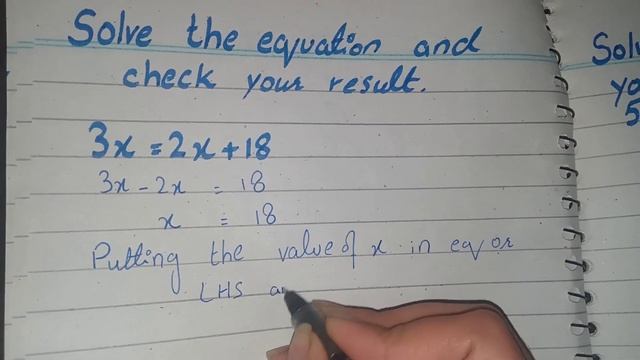 Solve the equation and
check your result.
3x = 2x + 18
3x - 2x = 18
x = 18
Putting the value of x in eq or
LHS
Sol
yo
5